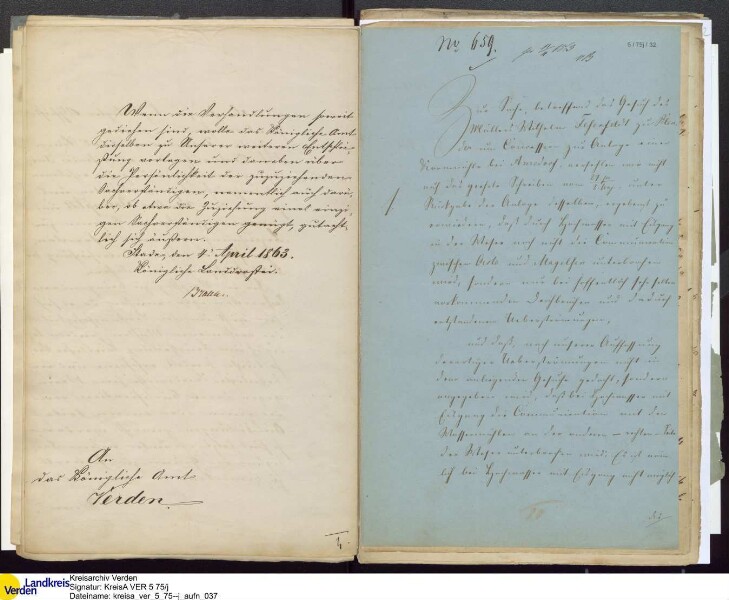 Wenn die Verhandlungen soweit
gediehen sind, wolle das Königliche Amt
dieselben zu Unserer weiteren Entschlie-
ßung vorlegen und daneben über
die Persönlichkeit der zuzuziehenden
Sachverständigen, namentlich auch darü-
ber, ob etwa die Zuziehung eines einzi-
gen Sachverständigen genügt, gutacht-
lich sich äußern.
Stade, den 4. April 1863.
Königliche Landdrostei.
An
das Königliche Amt
Verden
No 659.
Zur Sache, betreffend das Gesuch des
Müllers Wilhelm zu
um Concession zur Anlage einer
bei, verfehlen wir nicht
auf das geehrte Schreiben vom, unter
Rückgabe der Anlage desselben, ergebenst zu
erwiedern, daß durch Hochwasser mit Eisgang
in der Weser noch nicht die Communication
zwischen und unterbrochen
wird, sondern nur bei hoffentlich sehr selten
vorkommenden Deichbrüchen und dadurch
entstandenen Ueberströmungen,
und daß, nach unserer Auffassung
derartiger Ueberströmungen nicht in
dem anliegenden Gesuche gedacht, sondern
angegeben wird, daß bei Hochwasser mit
Eisgang die Communication mit den
Wassermühlen an der andern - rechten Seite
der Weser unterbrochen wird. Es ist näm-
lich bei Hochwasser mit Eisgang nicht möglich
die
Landkreis
Verden
Kreisarchiv Verden
Signatur: KreisA VER 5 75/j
Dateiname: kreisa_ver_5_75--j_aufn_037